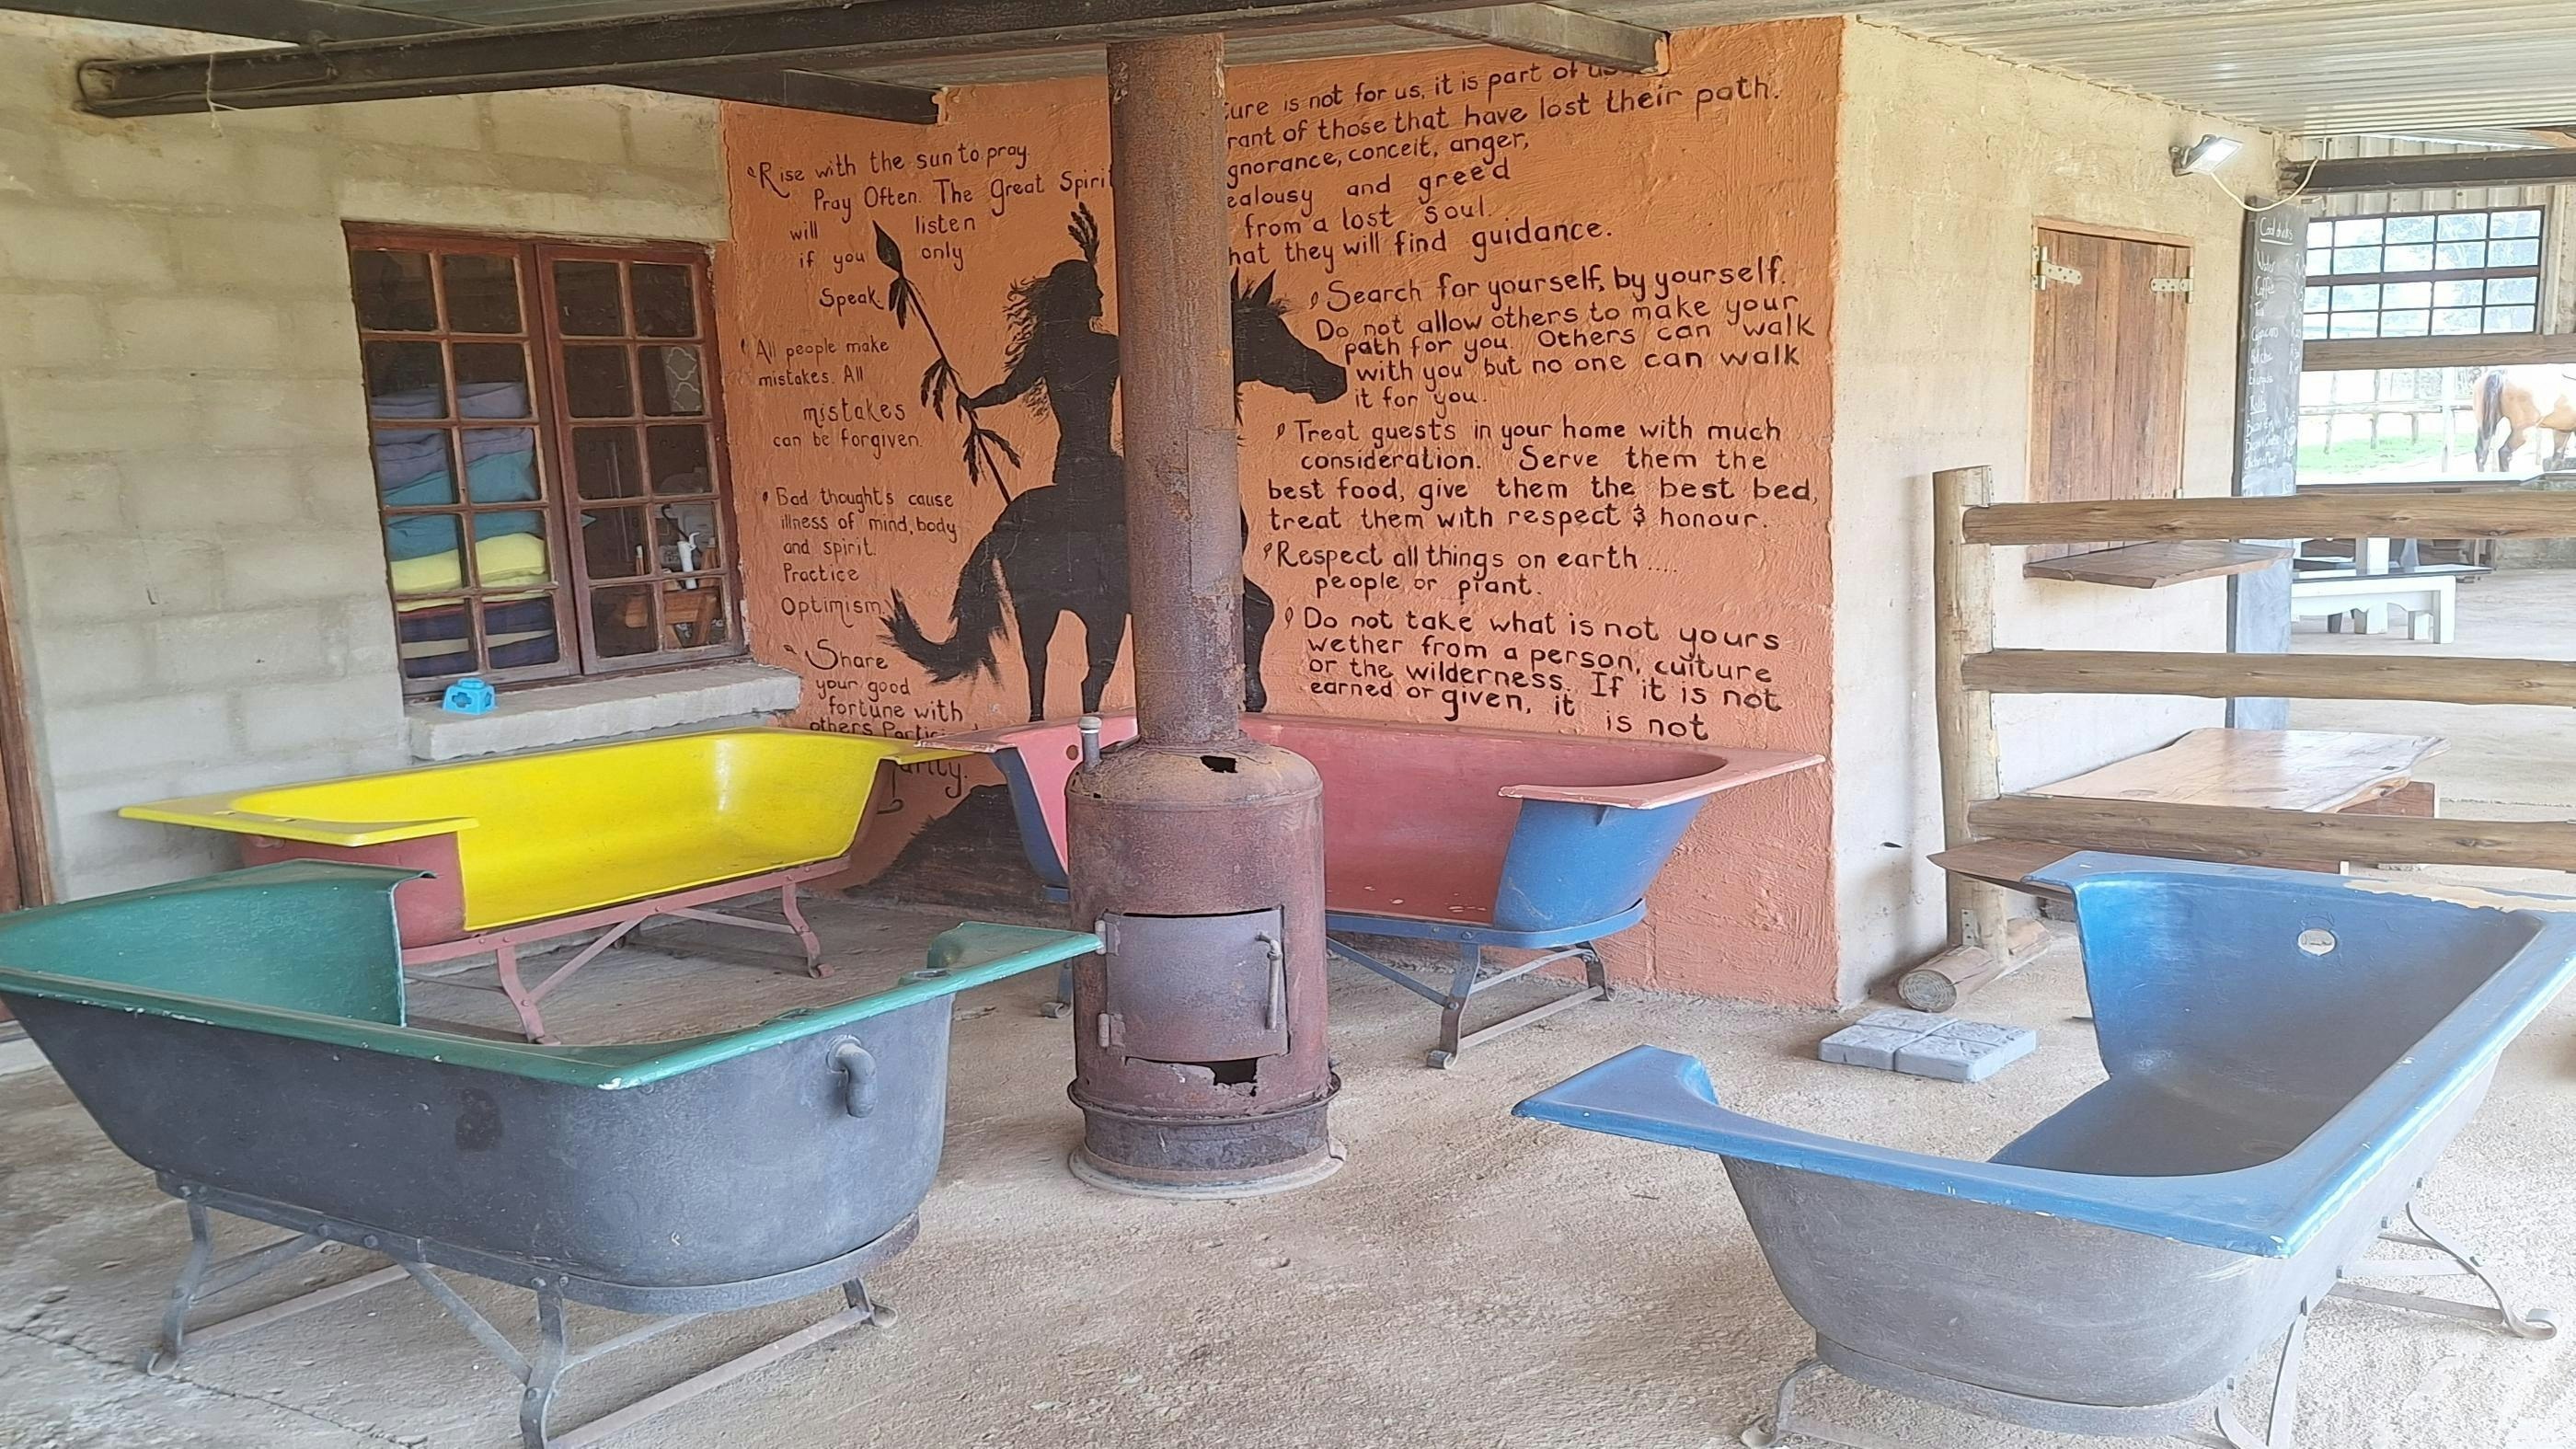 Rise with the sun to pray
Pray Often. The Great Spirit
will listen
if you only
Speak.
All people make
mistakes. All
mistakes
can be forgiven.
Bad thoughts cause
illness of mind, body
and spirit.
Practice
Optimism.
Share
your good
fortune with
others
is not for us, it is part of us
of those that have lost their path.
conceit, anger,
and greed
from a lost soul.
they will find guidance.
Search for yourself, by yourself.
Do not allow others to make your
path for you. Others can walk
with you but no one can walk
it for you.
Treat guests in your home with much
consideration. Serve them the
best food, give them the best bed,
treat them with respect & honour.
Respect all things on earth ....
people or plant.
Do not take what is not yours
wether from a person, culture
or the wilderness. If it is not
earned or given, it
is not
Water
Coffee
Tea